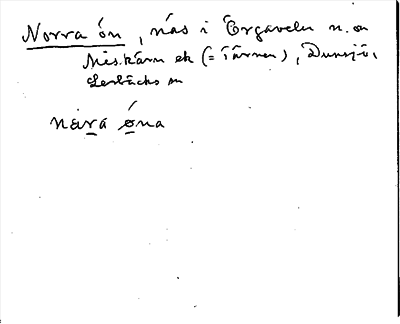 Norra ön, näs i Örgaveln n. om
Nis.kärn ek (= Tärnen), Dunsjö,
Lerbäcks sn
nɵrα ó̱na